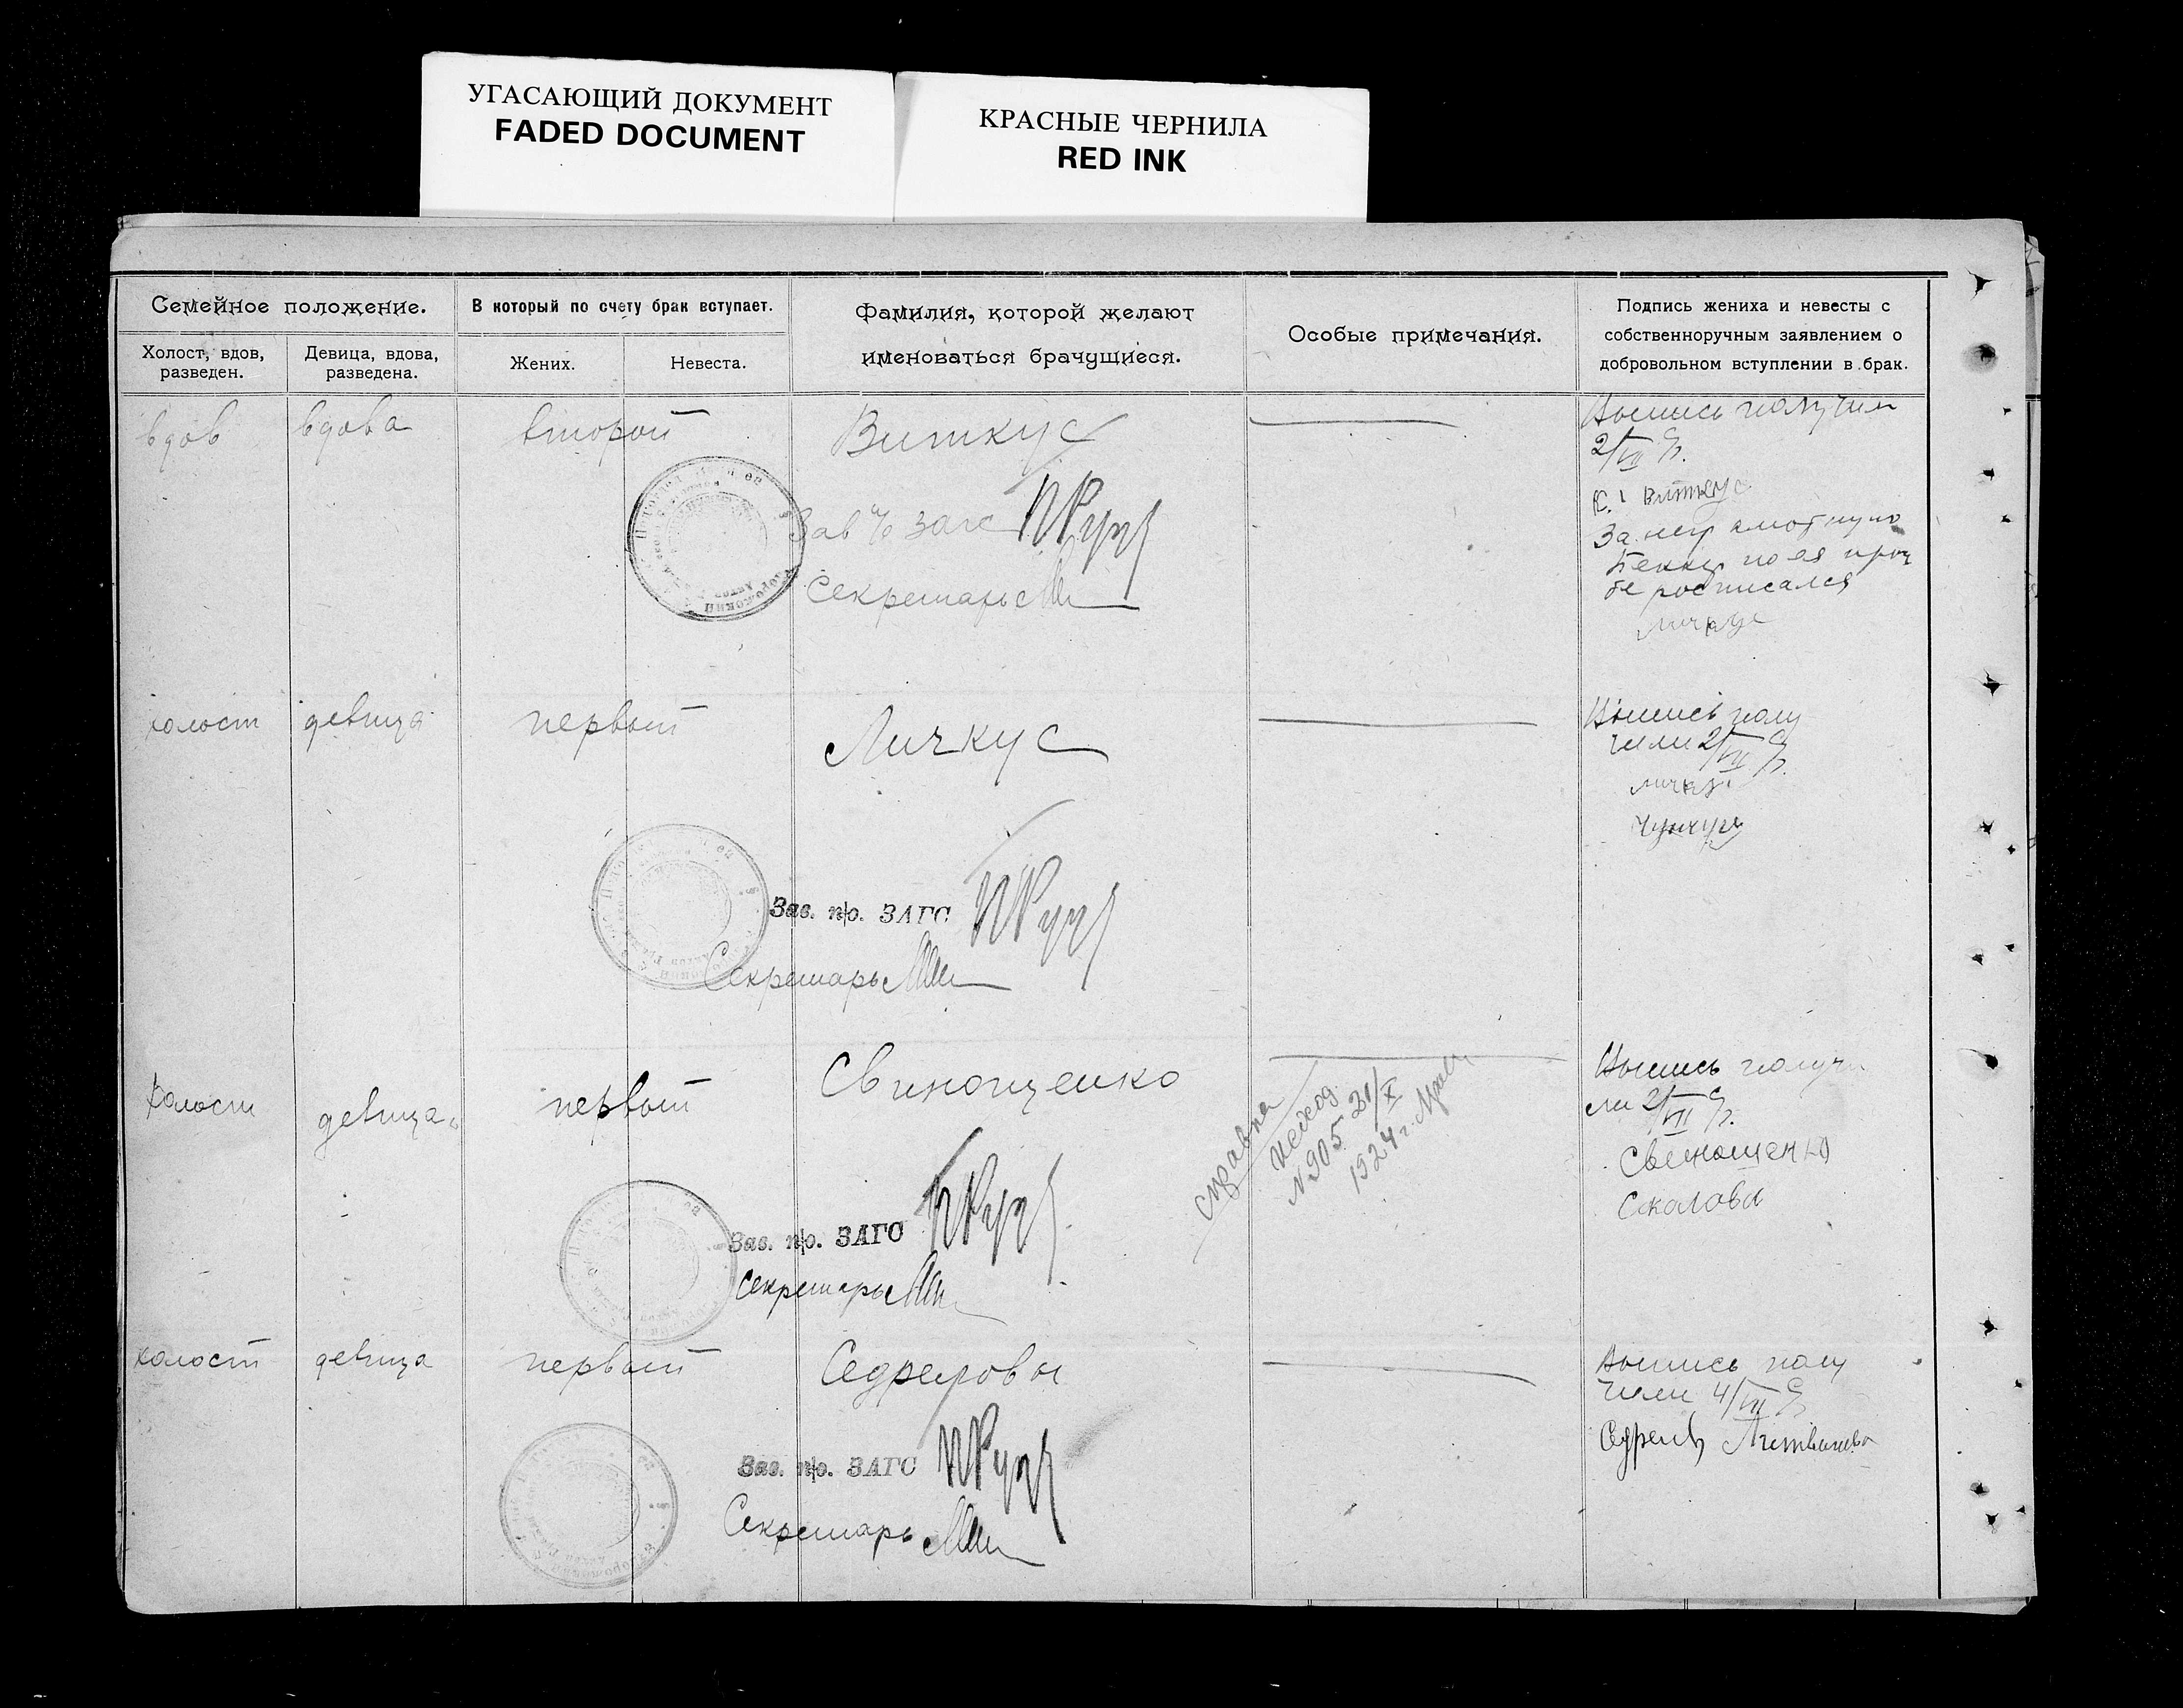 УГАСАЮЩИЙ ДОКУМЕНТ
FADED DOCUMENT
КРАСНЫЕ ЧЕРНИЛА
RED INK
Семейное положение.
Холост, вдов,
разведен.
Девица, вдова,
разведена.
В который по счету брак вступает.
Жених.
Невеста.
Фамилия, которой желают
именоваться брачущиеся.
Особые примечания.
Подпись жениха и невесты с
собственноручным заявлением о
добровольном вступлении в брак.
вдов
вдова
второй
Виткус
Зав п/о загс
Секретарь
Выпись получили
2/VII
Виткус
За неграмотную
по ея прось
бе росписался
Личкус
холост
девица
первый
Личкус
Зав. п/о. ЗАГС
Секретарь
Выпись полу
чили 2/VII
холост
девица
первый
Свинощенко
Зав. п/о. ЗАГС
Секретарь
справка
Исход.
N 905 21/X
1924 г.
Выпись получи
ли 2/VII
Свинощенко
холост
девица
первый
Зав. п/о. ЗАГС
Секретарь
Выпись полу
чили 4/VII